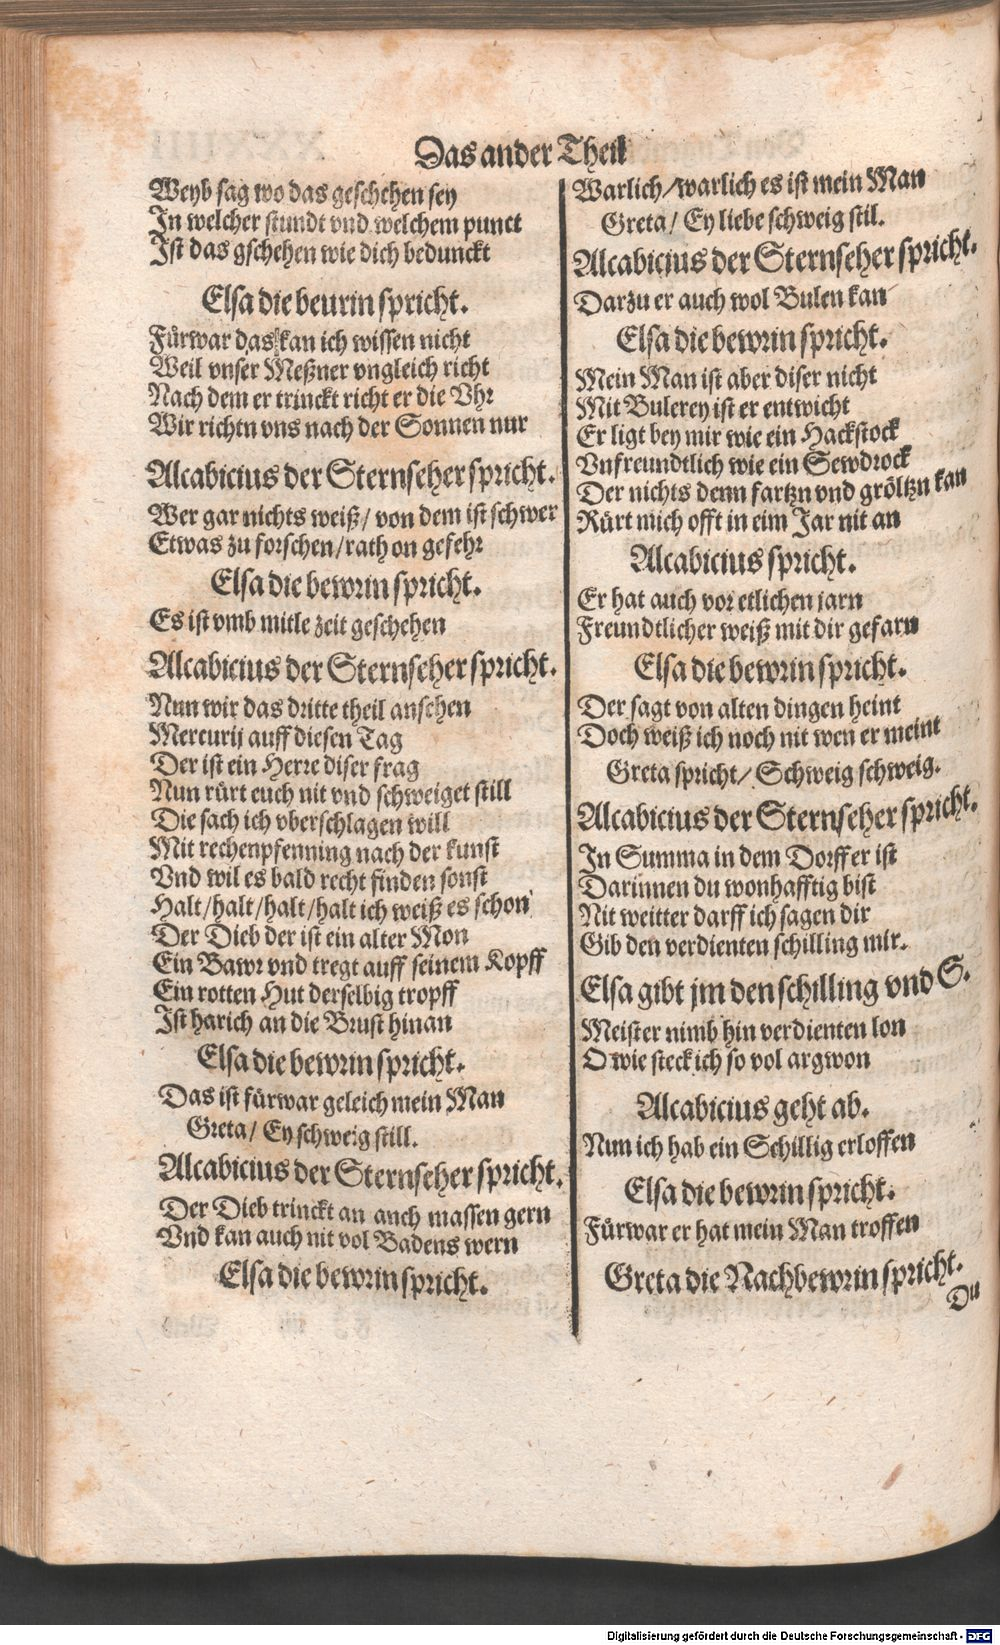 Das ander Theil
Weyb sag wo das geschehen sey
In welcher stundt vnd welchem punct
Ist das gschehen wie dich bedunckt
Elsa die beurin spricht.
Fürwar das kan ich wissen nicht
Weil vnser Meßner vngleich richt
Nach dem er trinckt richt er die Vhr
Wir richtn vns nach der Sonnen nur
Alcabicius der Sternseher spricht.
Wer gar nichts weiß/ von dem ist schwer
Etwas zu forschen/rath on gefehr
Elsa die bewrin spricht.
Es ist vmb mitle zeit geschehen
Alcabicius der Sternseher spricht.
Nun wir das dritte theil ansehen
Mercurij auff diesen Tag
Der ist ein Herre diser frag
Nun rürt euch nit vnd schweiget still
Die sach ich vberschlagen will
Mit rechenpfenning nach der kunst
Vnd wil es bald recht finden sonst
Halt/halt/halt/halt ich weiß es schon
Der Dieb der ist ein alter Mon
Ein Bawr vnd tregt auff seinem Kopff
Ein rotten Hut derselbig tropff
Ist harich an die Brust hinan
Elsa die bewrin spricht.
Das ist fürwar geleich mein Man
Greta/ Ey schweig still.
Alcabicius der Sternseher spricht.
Der Dieb trinckt an auch massen gern
Vnd kan auch nit vol Badens wern
Elsa die bewrin spricht.
Warlich/warlich es ist mein Man
Greta/ Ey liebe schweig stil.
Alcabicius der Sternseher spricht.
Darzu er auch wol Bulen kan
Elsa die bewrin spricht.
Mein Man ist aber diser nicht
Mit Bulerey ist er entwicht
Er ligt bey mir wie ein Hackstock
Vnfreundtlich wie ein Sewdrock
Der nichts denn fartzn vnd gröltzn kan
Rürt mich offt in eim Jar nit an
Alcabicius spricht.
Er hat auch vor etlichen jarn
Freundtlicher weiß mit dir gefarn
Elsa die bewrin spricht.
Der sagt von alten dingen heint
Doch weiß ich noch nit wen er meint
Greta spricht/ Schweig schweig.
Alcabicius der Sternseher spricht.
In Summa in dem Dorff er ist
Darinnen du wonhafftig bist
Nit weitter darff ich sagen dir
Gib den verdienten schilling mir.
Elsa gibt jm den schilling vnd S.
Meister nimb hin verdienten lon
O wie steck ich so vol argwon
Alcabicius geht ab.
Nun ich hab ein Schillig erloffen
Elsa die bewrin spricht.
Fürwar er hat mein Man troffen
Greta die Nachbewrin spricht.
Du
Digitalisierung gefördert durch die Deutsche Forschungsgemeinschaft - DFG